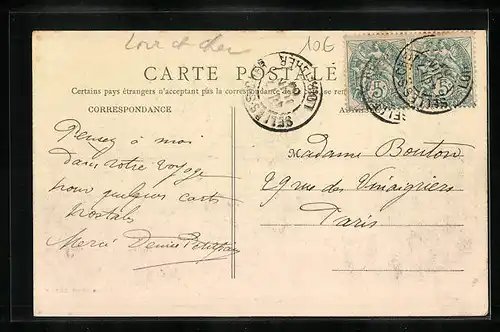 Loir et cher
10€
CARTE POSTALE
Certains pays étrangers n'acceptent pas la correspondance de
CORRESPONDANCE
Pensez à moi
dans votre voyage
pour quelques cartes
postales
Merci Denise
Madame Bouton
29 rue des Vinaigriers
Paris